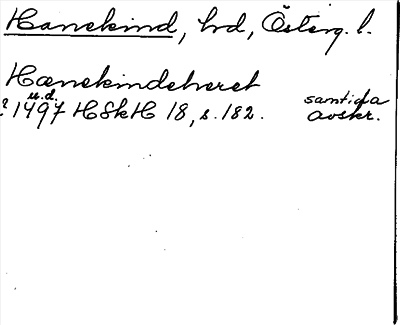 Hanekind, hd, Österg. l.
Hænekindeheret
u.d. samtida
? 1497 HSkH 18, s. 182. avskr.